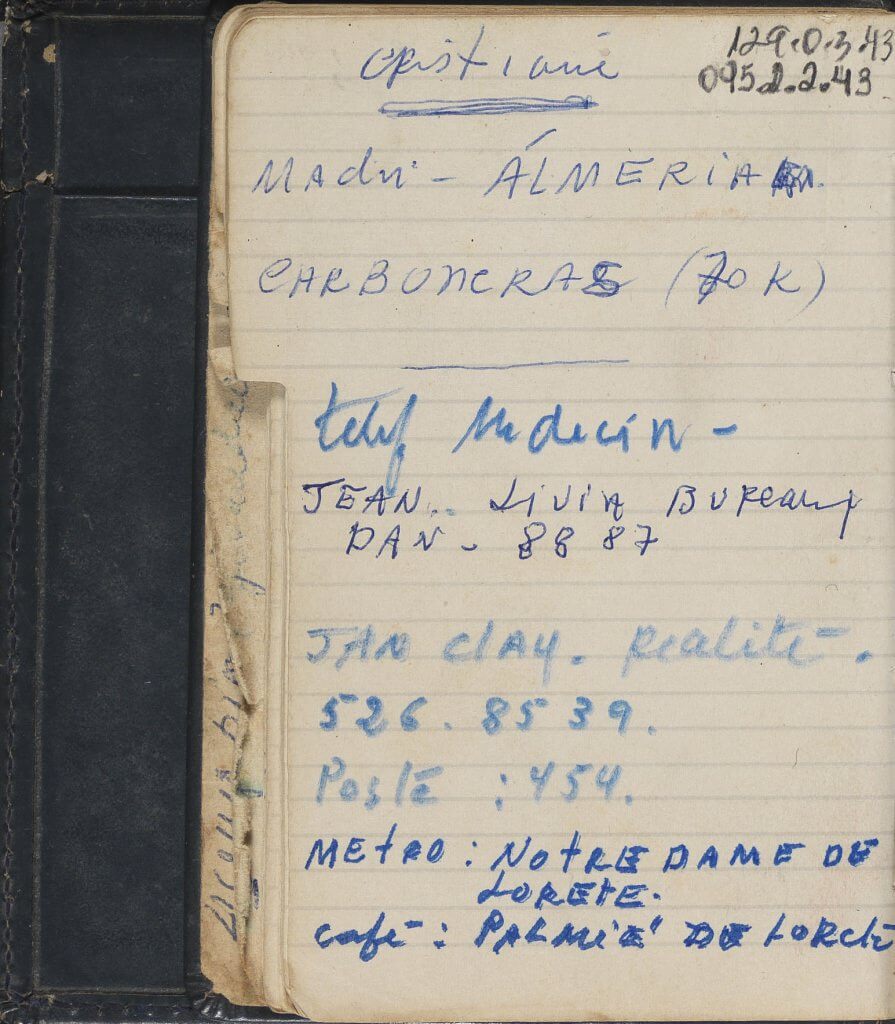 129.0.3.43
095.2.2.43
CRistiane
MAdri - ÁLMERIA
CARBONERAS (70 K)
telef Medecin -
JEAN.. LiViA BUReaux
DAN - 88 87
JAN ClAY. Realité.
526. 85 39.
Poste : 454.
METRO : NOTRE DAME DE
LORETE.
café : PALMIE DE LORETE